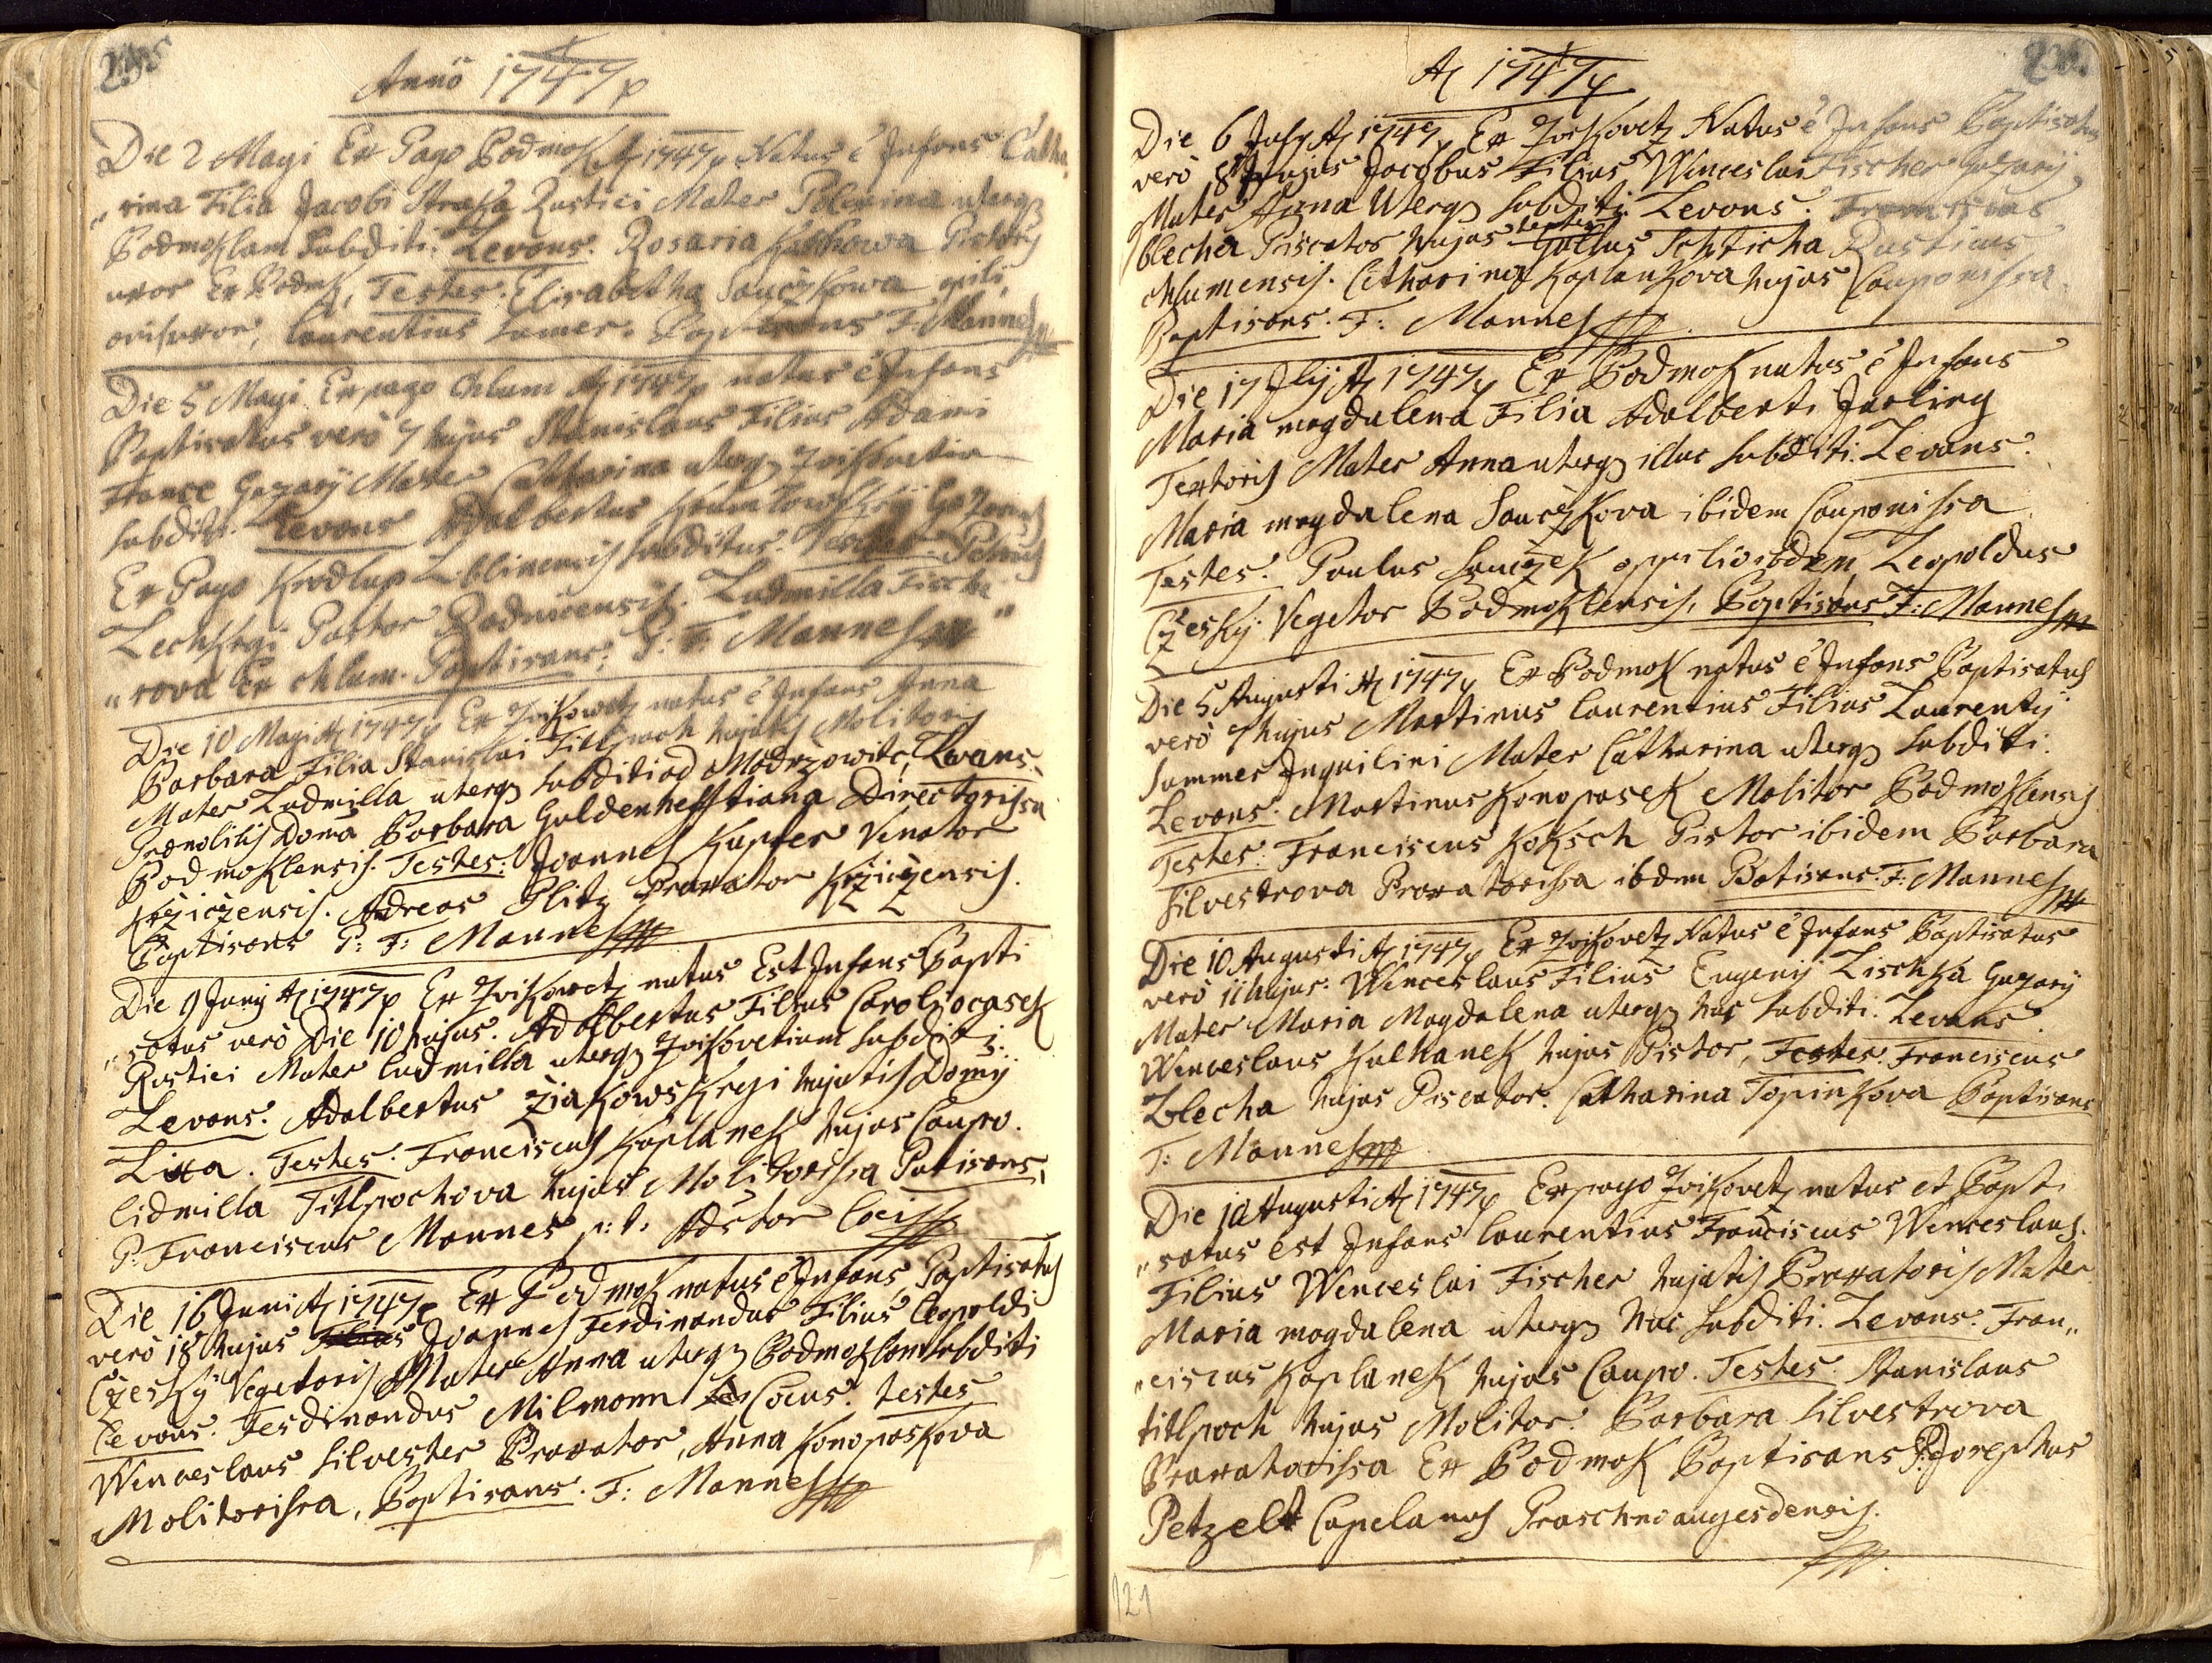 235
Anno 1747
Die 2 Magi Ex Pago Podmok A 1747 Natus è Infans Catha
"rina Filia Jacobi Straka Rustici Mater Polexina uterq
Podmoklam Subditi. Levans. Rosaria Pistoris
uxor Ex Podmk, Testes. Elisabetha Sauczkowa opili
onis uxor, Laurentius Sumer. Baptisans F: Mannes
Die 5 Magi Ex pago Chlum A 1747 natus è Infans
Baptisatus verò 7 hujus Stanislaus Filius Adami
France Gazarÿ Mater Catharina uterq Zwikovetia
subditi. Levans Adalbertus
Ex Pago Liblinensis subditus. Testes. Petrus
Lechkegi Pastor Radnicensis. Ludmilla Fische
"rova Ex Chlum. Baptisans: P: F: Mannes
Die 10 Magi A 1747 Ex Zwikowetz natus è Infans Anna
Barbara Filia Stanislai Titlpoch hujatis Molitoris
Mater Ludmilla uterq subditi ad Modrzowitc, Levans.
Prænobilis Doma Barbara Guldenneftiana Directorissa
Podmoklensis. Testes: Joannes Kupfer Venator
Krziczensis. Adreas Plitz Praxator Krziczensis.
Baptisans P: F: Mannes
Die 9 Junÿ A 1747 Ex Zwikowetz natus Est Infans Bapti
"satus verò Die 10 hujus. Adalbertus Filius Caroli ocasek
Rustici Mater Ludmilla uterq Zwikovetium subditi.
Levans. Adalbertus Ziakowskegi hujatis Domÿ
Lixa. Testes: Franciscus Kaplanek hujas Caupo.
Lidmilla Titlpochova hujas Molitorissa Patisans,
P: Franciscus Mannes p: t: Adstor Loci
Die 16 Juni A 1747 Ex Podmok natus è Infans, Baptisatus
verò 18 hujus Joannes Ferdinandus Filius Leopoldi
Czeskÿ Vegetoris Mater Anna uterq Podmoklam subditi
Levans. Ferdinandus Milmann Cocus. testes
Wenceslaus Silvester Praxator, Anna Konopaskova
Molitorissa, Baptisans. F: Mannes
236
A 1747
Die 6 July A 1747 Ex Zwikovetz Natus è Infans Baptisatus
verò 8 hujus Jacobus Filius Wenceslai Fischer Gazarÿ,
Mater Anna Uterq subditi Levans. Franciscus
blecha Piscator hujas testes Gallus Schticha Rusticus
chlumensis. Catharina Kaplankova hujas Cauponissa.
Baptisans. F: Mannes
Die 17 Jlÿ A 1747 Ex Podmok natus è Infans
Maria magdalena Filia Adalberti Jarling
Textoris Mater Anna uterq illuc subditi. Levans.
Maria magdalena Sauczkova ibidem Cauponissa
Testes. Paulus Sauczek oppilio ibdem Leopoldus
Czeskÿ Vegetor Podmoklensis, Baptisans F: Mannes
Die 5 Augusti A 1747 Ex Podmok natus è Infans Baptisatus
verò 7 hujus Martinus Laurentius Filius Laurentÿ
Summer Inquilini Mater Catharina uterq subditi.
Levans. Martinus Konopasek Molitor Podmoklensis
Testes. Franciscus Koksch Pistor ibidem Barbara
Silvestrova Praxatorissa ibdem Batisans. F: Mannes
Die 10 Augusti A 1747 Ex Zwikovetz Natus è Infans Baptisatus
verò 11 hujus: Wenceslaus Filius Eugenÿ Lischka Gazarÿ
Mater Maria Magdalena uterq huc subditi. Levans.
Wenceslaus Kulhanek hujas Pistor, Testes. Franciscus
Blecha hujas Piscator. Catharina Topinkova Baptisans
F: Mannes
Die 10 Augusti A 1747 Ex pago Zwikovetz natus et Bapti
"satus est Infans Laurentius Franciscus Wenceslaus.
Filius Wenceslai Fischer hujatis Praxatoris Mater
Maria magdalena uterq huc subditi. Levans. Fran"
"ciscus Kaplanek hujas Caupo. Testes. Stanislaus
titlpoch hujas Molitor. Barbara Silvestrova
Praxatorissa Ex Podmok Baptisans P: Josephus
Petzelt Capelanus Praschnoaugesdensis.
121